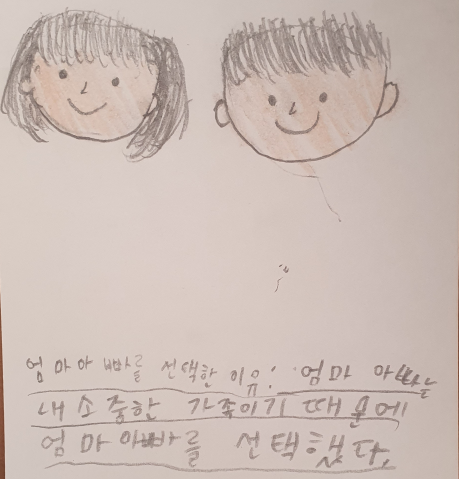 엄마아빠를 선택한 이유: 엄마 아빠는
내 소중한 가족이기 때문에
엄마아빠를 선택했다.